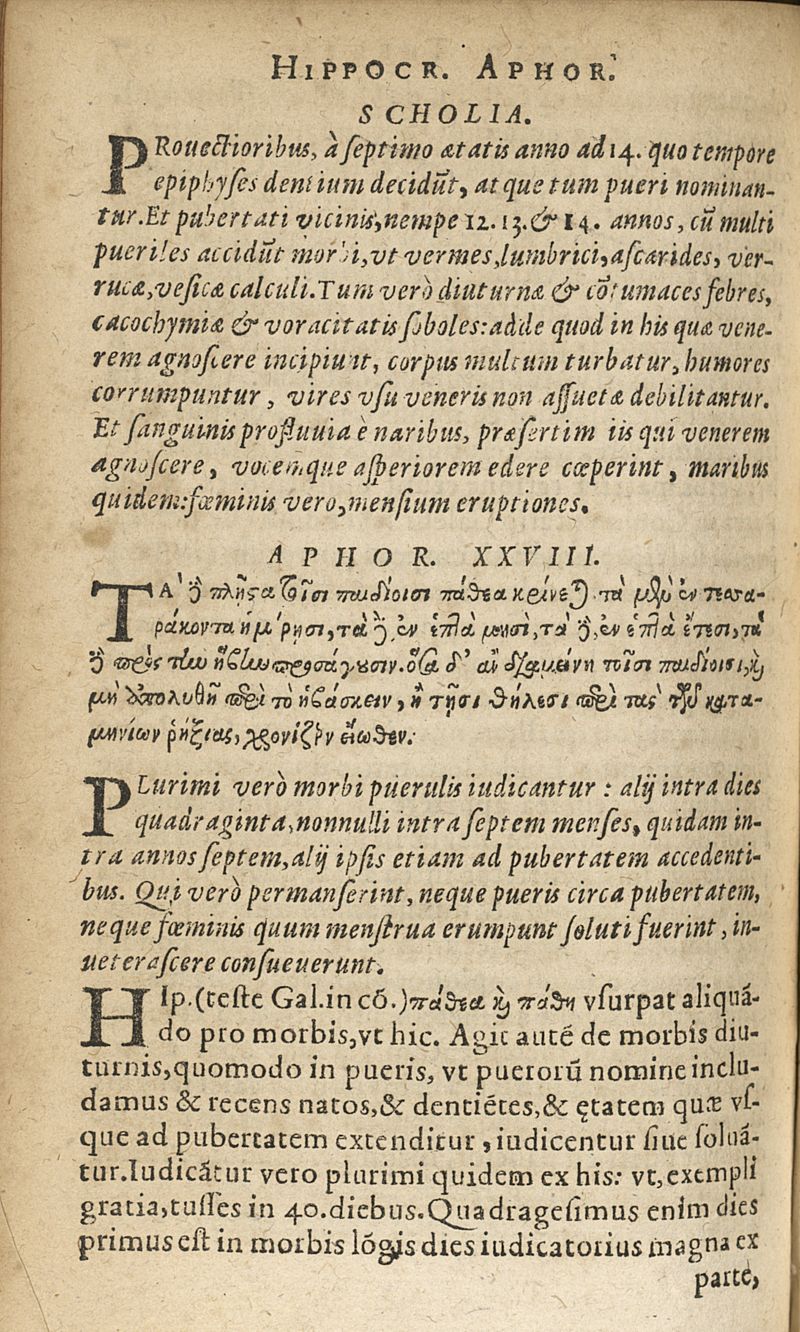 HIPPOCR. APHOR.
SCHOLIA.
PRouectioribus, à septimo ætatis anno ad 14. quo tempore
epiphyses dentium decidūt, atque tum pueri nominan-
tur. Et pubertati vicinis, nempe 12. 13. & 14. annos, cū multi
pueriles accidūt morbi, vt vermes, lumbrici, ascarides, ver-
rucæ, vesicæ calculi. Tum verò diuturnæ & cōtumaces febres,
cacochymiæ & voracitatis soboles: adde quod in his quæ vene-
rem agnoscere incipiunt, corpus multum turbatur, humores
corrumpuntur, vires vsu veneris non assuetæ debilitantur.
Et sanguinis profluuia è naribus, præsertim iis qui venerem
agnoscere, vocemque asperiorem edere cœperint, maribus
quidem: fœminis vero, mensium eruptiones.
APHOR. XXVIII.
ΤᾺ δὲ πλεῖστα τοῖσι παιδίοισι πάθεα κρίνεται, τὰ μὲν ἐν τεσσα-
ράκοντα ἡμέρῃσι, τὰ δὲ ἐν ἑπτὰ μησὶ, τὰ δὲ, ἐν ἑπτὰ ἔτεσι, τὰ
δὲ πρὸς τὴν ἥβην προσάγουσιν. ὅσα δ' ἂν διαμείνῃ τοῖσι παιδίοισι, καὶ
μὴ ἀπολυθῇ περὶ τὸ ἡβάσκειν, ἢ τῇσι θήλεσι περὶ τὰς τῶν κατα-
μηνίων ῥήξιας, χρονίζειν εἴωθεν.
PLurimi verò morbi puerulis iudicantur: alij intra dies
quadraginta, nonnulli intra septem menses, quidam in-
tra annos septem, alij ipsis etiam ad pubertatem accedenti-
bus. Qui verò permanserint, neque pueris circa pubertatem,
neque fœminis quum menstrua erumpunt soluti fuerint, in-
ueterascere consueuerunt.
HIp. (teste Gal. in cō.) πάθεα καὶ πάθη vsurpat aliquā-
do pro morbis, vt hic. Agit autē de morbis diu-
turnis, quomodo in pueris, vt puerorū nomine inclu-
damus & recens natos, & dentiētes, & ętatem quæ vs-
que ad pubertatem extenditur, iudicentur siue soluā-
tur. Iudicātur vero plurimi quidem ex his: vt, exempli
gratia, tusses in 40. diebus. Quadragesimus enim dies
primus est in morbis lōgis dies iudicatorius magna ex
parte,